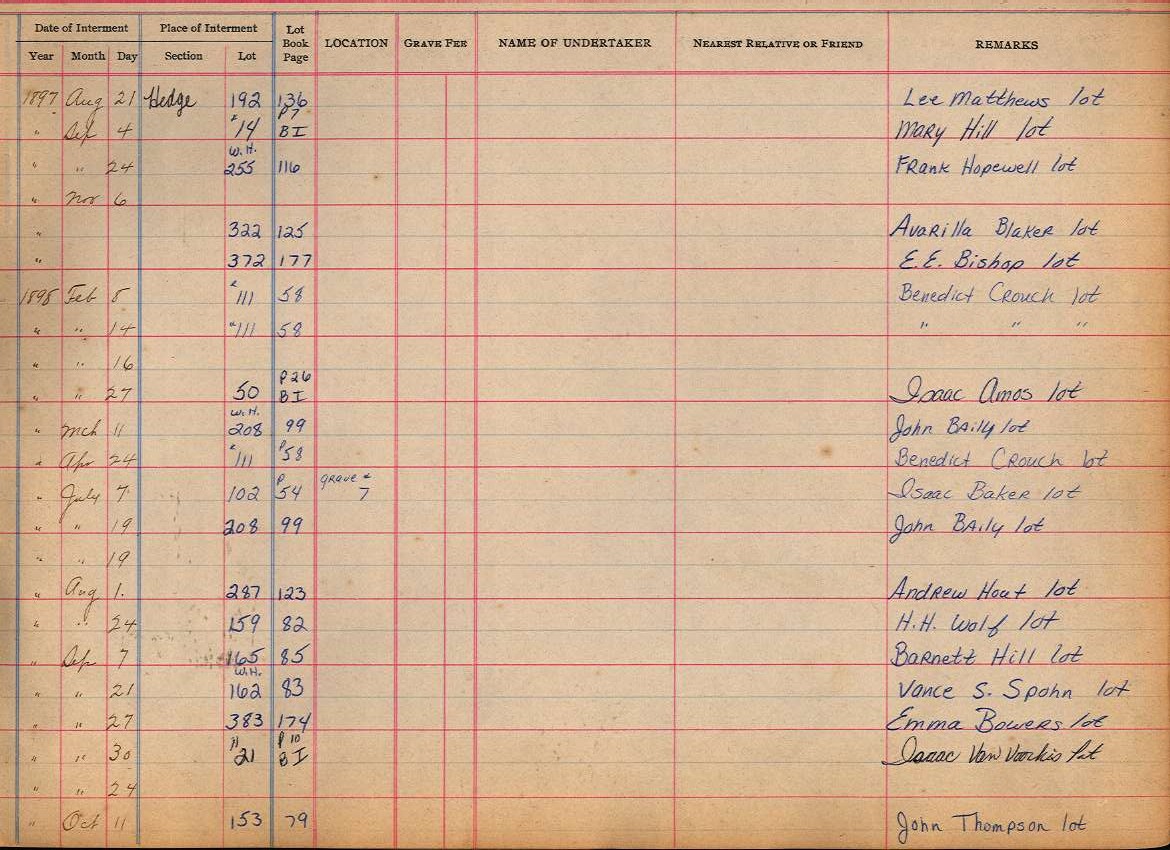 Date of Interment Place of Interment Lot Book Page LOCATION GRAVE FEE NAME OF UNDERTAKER NEAREST RELATIVE OR FRIEND REMARKS
Year Month Day Section Lot
1897 Aug 21 Hedge 192 136 Lee Matthews lot
" Sep 4 " 14 P7 BI Mary Hill lot
" " 24 W.H. 255 116 Frank Hopewell lot
" Nov 6
" 322 125 Avarilla Blaker lot
" 372 177 E.E. Bishop lot
1898 Feb 5 " 111 58 Benedict Crouch lot
" " 14 " 111 58 " " "
" " 16
" " 27 50 P26 BI Isaac Amos lot
" Mch 11 W.H. 208 99 John Baily lot
" Apr 24 " 111 P58 Benedict Crouch lot
" July 7 102 P54 grave # 7 Isaac Baker lot
" " 19 208 99 John Baily lot
" " 19
" Aug 1. 287 123 Andrew Hout lot
" " 24 159 82 H.H. Wolf lot
" Sep 7 165 85 Barnett Hill lot
" " 21 W.H. 162 83 Vance S. Spohn lot
" " 27 383 174 Emma Bowers lot
" " 30 21 P10 BI Isaac Van Voorhis lot
" " 24
" Oct 11 153 79 John Thompson lot